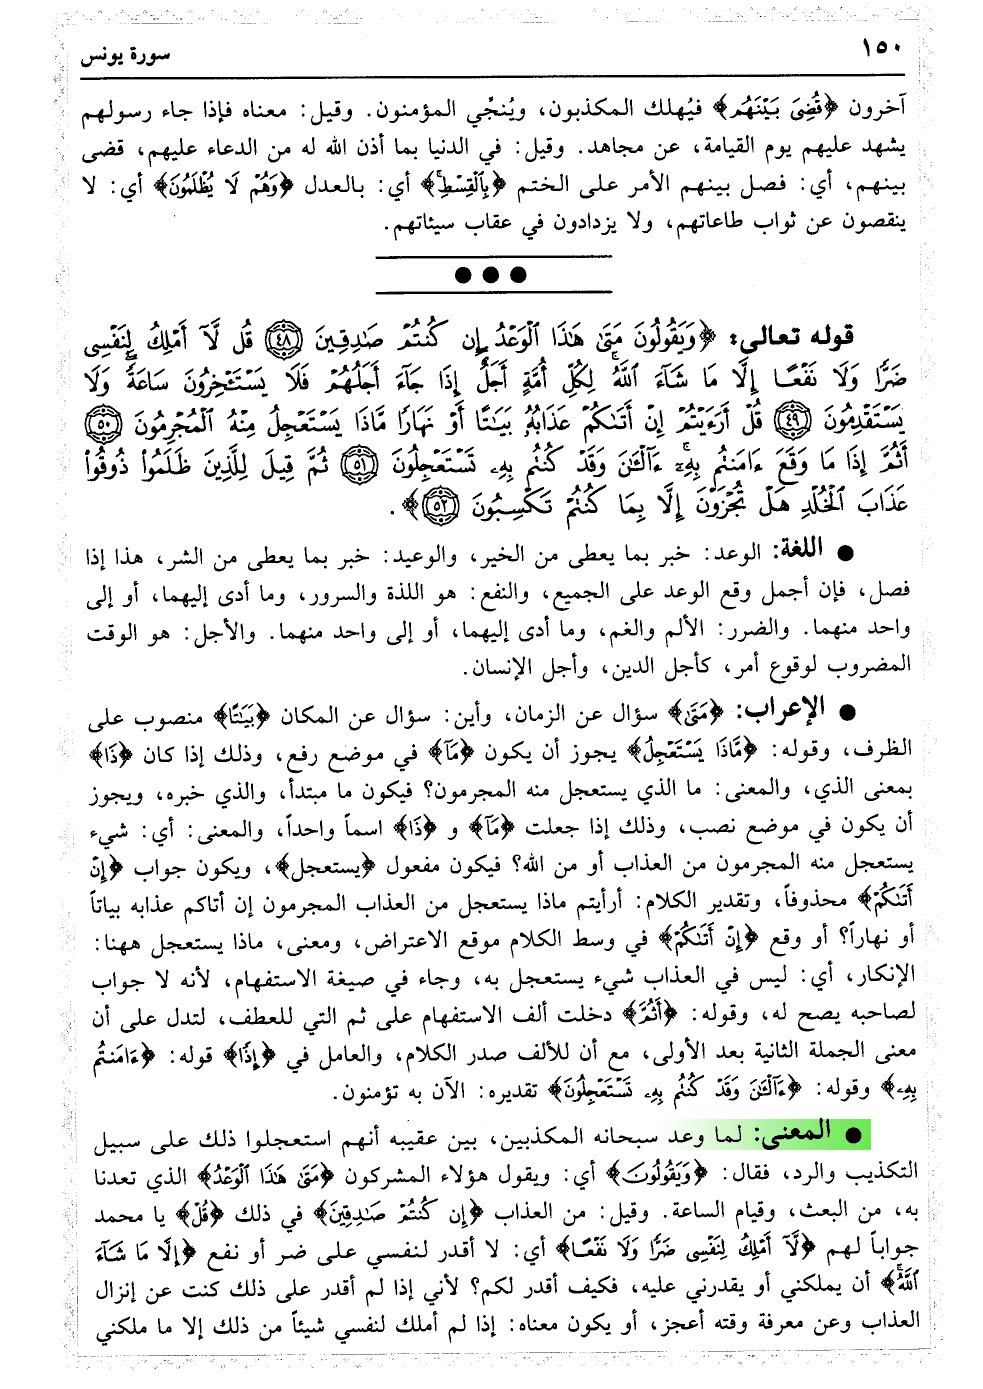 ١٥٠
سورة يونس
آخرون ﴿قُضِىَ بَيْنَهُم﴾ فيُهلك المكذبون، ويُنجِّي المؤمنون. وقيل: معناه فإذا جاء رسولهم
يشهد عليهم يوم القيامة، عن مجاهد. وقيل: في الدنيا بما أذن الله له من الدعاء عليهم، قضى
بينهم، أي: فصل بينهم الأمر على الختم ﴿بِٱلْقِسْطِۚ﴾ أي: بالعدل ﴿وَهُمْ لَا يُظْلَمُونَ﴾ أي: لا
ينقصون عن ثواب طاعاتهم، ولا يزدادون في عقاب سيئاتهم.
قوله تعالى: ﴿وَيَقُولُونَ مَتَىٰ هَٰذَا ٱلْوَعْدُ إِن كُنتُمْ صَٰدِقِينَ ٤٨ قُل لَّآ أَمْلِكُ لِنَفْسِى
ضَرًّا وَلَا نَفْعًا إِلَّا مَا شَآءَ ٱللَّهُۗ لِكُلِّ أُمَّةٍ أَجَلٌۚ إِذَا جَآءَ أَجَلُهُمْ فَلَا يَسْتَـْٔخِرُونَ سَاعَةًۖ وَلَا
يَسْتَقْدِمُونَ ٤٩ قُلْ أَرَءَيْتُمْ إِنْ أَتَىٰكُمْ عَذَابُهُۥ بَيَٰتًا أَوْ نَهَارًا مَّاذَا يَسْتَعْجِلُ مِنْهُ ٱلْمُجْرِمُونَ ٥٠
أَثُمَّ إِذَا مَا وَقَعَ ءَامَنتُم بِهِۦٓۚ ءَآلْـَٰٔنَ وَقَدْ كُنتُم بِهِۦ تَسْتَعْجِلُونَ ٥١ ثُمَّ قِيلَ لِلَّذِينَ ظَلَمُوا۟ ذُوقُوا۟
عَذَابَ ٱلْخُلْدِ هَلْ تُجْزَوْنَ إِلَّا بِمَا كُنتُمْ تَكْسِبُونَ ٥٢﴾.
● اللغة: الوعد: خبر بما يعطى من الخير، والوعيد: خبر بما يعطى من الشر، هذا إذا
فصل، فإن أجمل وقع الوعد على الجميع، والنفع: هو اللذة والسرور، وما أدى إليهما، أو إلى
واحد منهما. والضرر: الألم والغم، وما أدى إليهما، أو إلى واحد منهما. والأجل: هو الوقت
المضروب لوقوع أمر، كأجل الدين، وأجل الإنسان.
● الإعراب: ﴿مَتَىٰ﴾ سؤال عن الزمان، وأين: سؤال عن المكان ﴿بَيَٰتًا﴾ منصوب على
الظرف، وقوله: ﴿مَّاذَا يَسْتَعْجِلُ﴾ يجوز أن يكون ﴿مَآ﴾ في موضع رفع، وذلك إذا كان ﴿ذَا﴾
بمعنى الذي، والمعنى: ما الذي يستعجل منه المجرمون؟ فيكون ما مبتدأ، والذي خبره، ويجوز
أن يكون في موضع نصب، وذلك إذا جعلت ﴿مَآ﴾ و ﴿ذَا﴾ اسماً واحداً، والمعنى: أي: شيء
يستعجل منه المجرمون من العذاب أو من الله؟ فيكون مفعول ﴿يستعجل﴾، ويكون جواب ﴿إِنْ
أَتَىٰكُمْ﴾ محذوفاً، وتقدير الكلام: أرأيتم ماذا يستعجل من العذاب المجرمون إن أتاكم عذابه بياتاً
أو نهاراً؟ أو وقع ﴿إِنْ أَتَىٰكُمْ﴾ في وسط الكلام موقع الاعتراض، ومعنى، ماذا يستعجل ههنا:
الإنكار، أي: ليس في العذاب شيء يستعجل به، وجاء في صيغة الاستفهام، لأنه لا جواب
لصاحبه يصح له، وقوله: ﴿أَثُمَّ﴾ دخلت ألف الاستفهام على ثم التي للعطف، لتدل على أن
معنى الجملة الثانية بعد الأولى، مع أن للألف صدر الكلام، والعامل في ﴿إِذَا﴾ قوله: ﴿ءَامَنتُم
بِهِۦ﴾ وقوله: ﴿ءَآلْـَٰٔنَ وَقَدْ كُنتُم بِهِۦ تَسْتَعْجِلُونَ﴾ تقديره: الآن به تؤمنون.
● المعنى: لما وعد سبحانه المكذبين، بين عقيبه أنهم استعجلوا ذلك على سبيل
التكذيب والرد، فقال: ﴿وَيَقُولُونَ﴾ أي: ويقول هؤلاء المشركون ﴿مَتَىٰ هَٰذَا ٱلْوَعْدُ﴾ الذي تعدنا
به، من البعث، وقيام الساعة. وقيل: من العذاب ﴿إِن كُنتُمْ صَٰدِقِينَ﴾ في ذلك ﴿قُلْ﴾ يا محمد
جواباً لهم ﴿لَّآ أَمْلِكُ لِنَفْسِى ضَرًّا وَلَا نَفْعًا﴾ أي: لا أقدر لنفسي على ضر أو نفع ﴿إِلَّا مَا شَآءَ
ٱللَّهُۚ﴾ أن يملكني أو يقدرني عليه، فكيف أقدر لكم؟ لأني إذا لم أقدر على ذلك كنت عن إنزال
العذاب وعن معرفة وقته أعجز، أو يكون معناه: إذا لم أملك لنفسي شيئاً من ذلك إلا ما ملكني